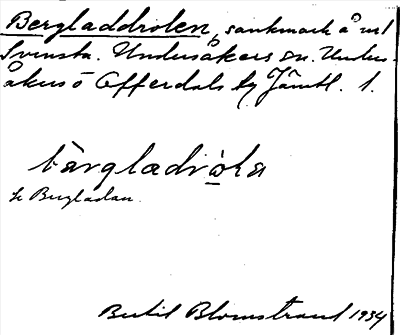 Bergladdrolen, sankmark å vul
Svensta. Undersåkers sn. Unders-
åkers o Offerdals tg Jämtl. l.
bàrgladròka
se Bergladan.
Bertil Blomstrand 1934